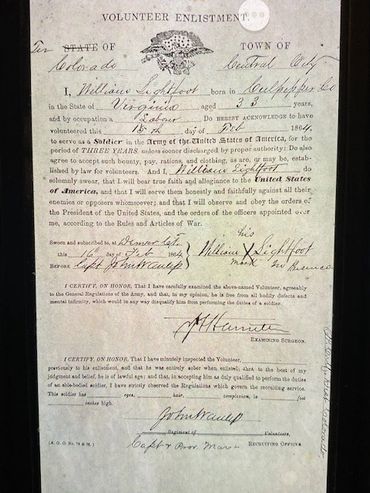 VOLUNTEER ENLISTMENT.
Ter STATE OF TOWN OF
Colorado Central City
I, William Lightfoot born in Culpepper Co
in the State of Virginia aged 33 years,
and by occupation a Labour Do HEREBY ACKNOWLEDGE to have
volunteered this 15th day of Feb 1864,
to serve as a Soldier in the Army of the United States of America, for the
period of THREE YEARS, unless sooner discharged by proper authority: Do also
agree to accept such bounty, pay, rations, and clothing, as are, or may be, estab-
lished by law for volunteers. And I, William Lightfoot do
solemnly swear, that I will bear true faith and allegiance to the United States
of America, and that I will serve them honestly and faithfully against all their
enemies or opposers whomsoever; and that I will observe and obey the orders of
the President of the United States, and the orders of the officers appointed over
me, according to the Rules and Articles of War.
his
Sworn and subscribed to, at Denver City
William X Lightfoot
this 16 day of Feb 1864
mark
BEFORE Capt John Wanless
I CERTIFY, ON HONOR, That I have carefully examined the above-named Volunteer, agreeably
to the General Regulations of the Army, and that, in my opinion, he is free from all bodily defects and
mental infirmity, which would in any way disqualify him from performing the duties of a soldier.
EXAMINING SURGEON.
I CERTIFY, ON HONOR, That I have minutely inspected the Volunteer,
previously to his enlistment, and that he was entirely sober when enlisted; that, to the best of my
judgment and belief, he is of lawful age; and that, in accepting him as duly qualified to perform the duties
of an able-bodied soldier, I have strictly observed the Regulations which govern the recruiting service.
This soldier has eyes, hair, complexion, is feet
inches high.
John Wanless
Regiment of Volunteers,
(A. G. O. No. 74 & 76.) Capt & Prov. Mar RECRUITING OFFICER